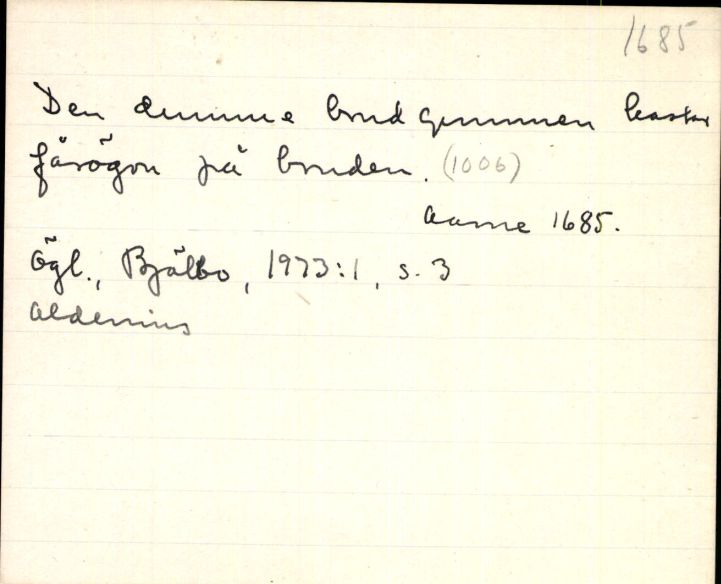 1685
Den dumme brudgummen kastar
fårögon på bruden. (1006)
Aarne 1685.
Ögl., Bjälbo, 1973:1, s. 3
Aldenius